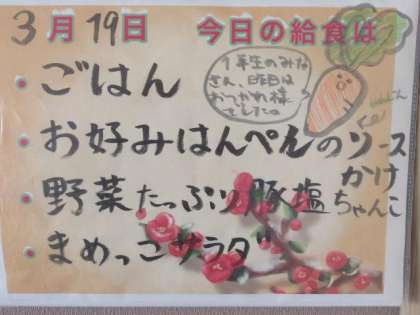 3月19日 今日の給食は
1年生のみな
さん、昨日は
おつかれ様
でした。
・ごはん
・お好みはんぺんのソース
かけ
・野菜たっぷり豚塩ちゃんこ
・まめっこサラダ